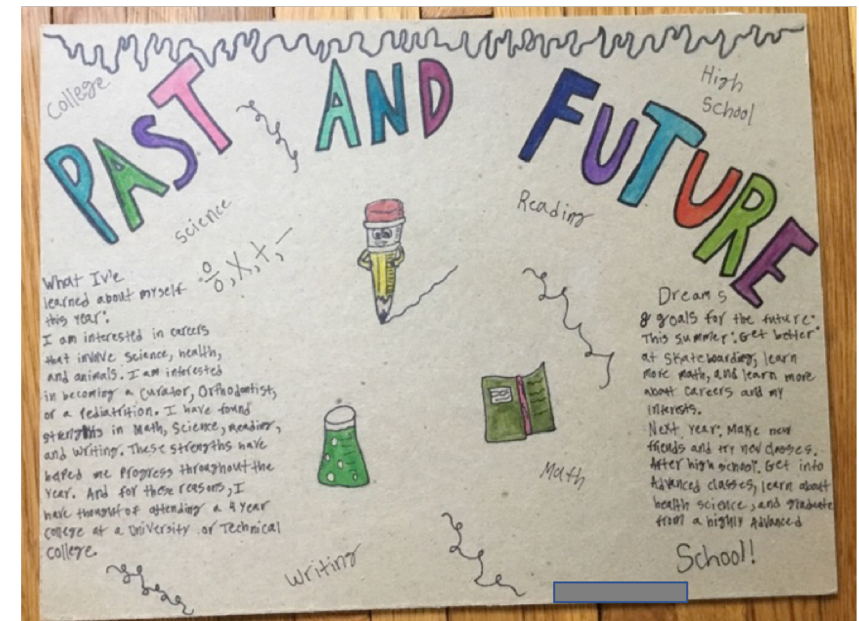 College
PAST AND FUTURE
High
School
Science
Reading
÷, X, +, -
What Iv'e
learned about myself
this year:
I am interested in careers
that involve science, health,
and animals. I am interested
in becoming a Curator, Orthodontist,
or a Pediatrition. I have found
strengths in Math, Science, Reading,
and Writing. These strengths have
helped me Progress throughout the
Year. And for these reasons, I
have thought of attending a 4 year
College at a University or Technical
College.
Dreams
& goals for the future:
This summer: Get better
at Skateboarding, learn
more math, and learn more
about Careers and my
Interests.
Next year: Make new
friends and try new classes.
After high school: Get into
Advanced classes, learn about
health science, and graduate
from a highly Advanced
School!
Math
Writing